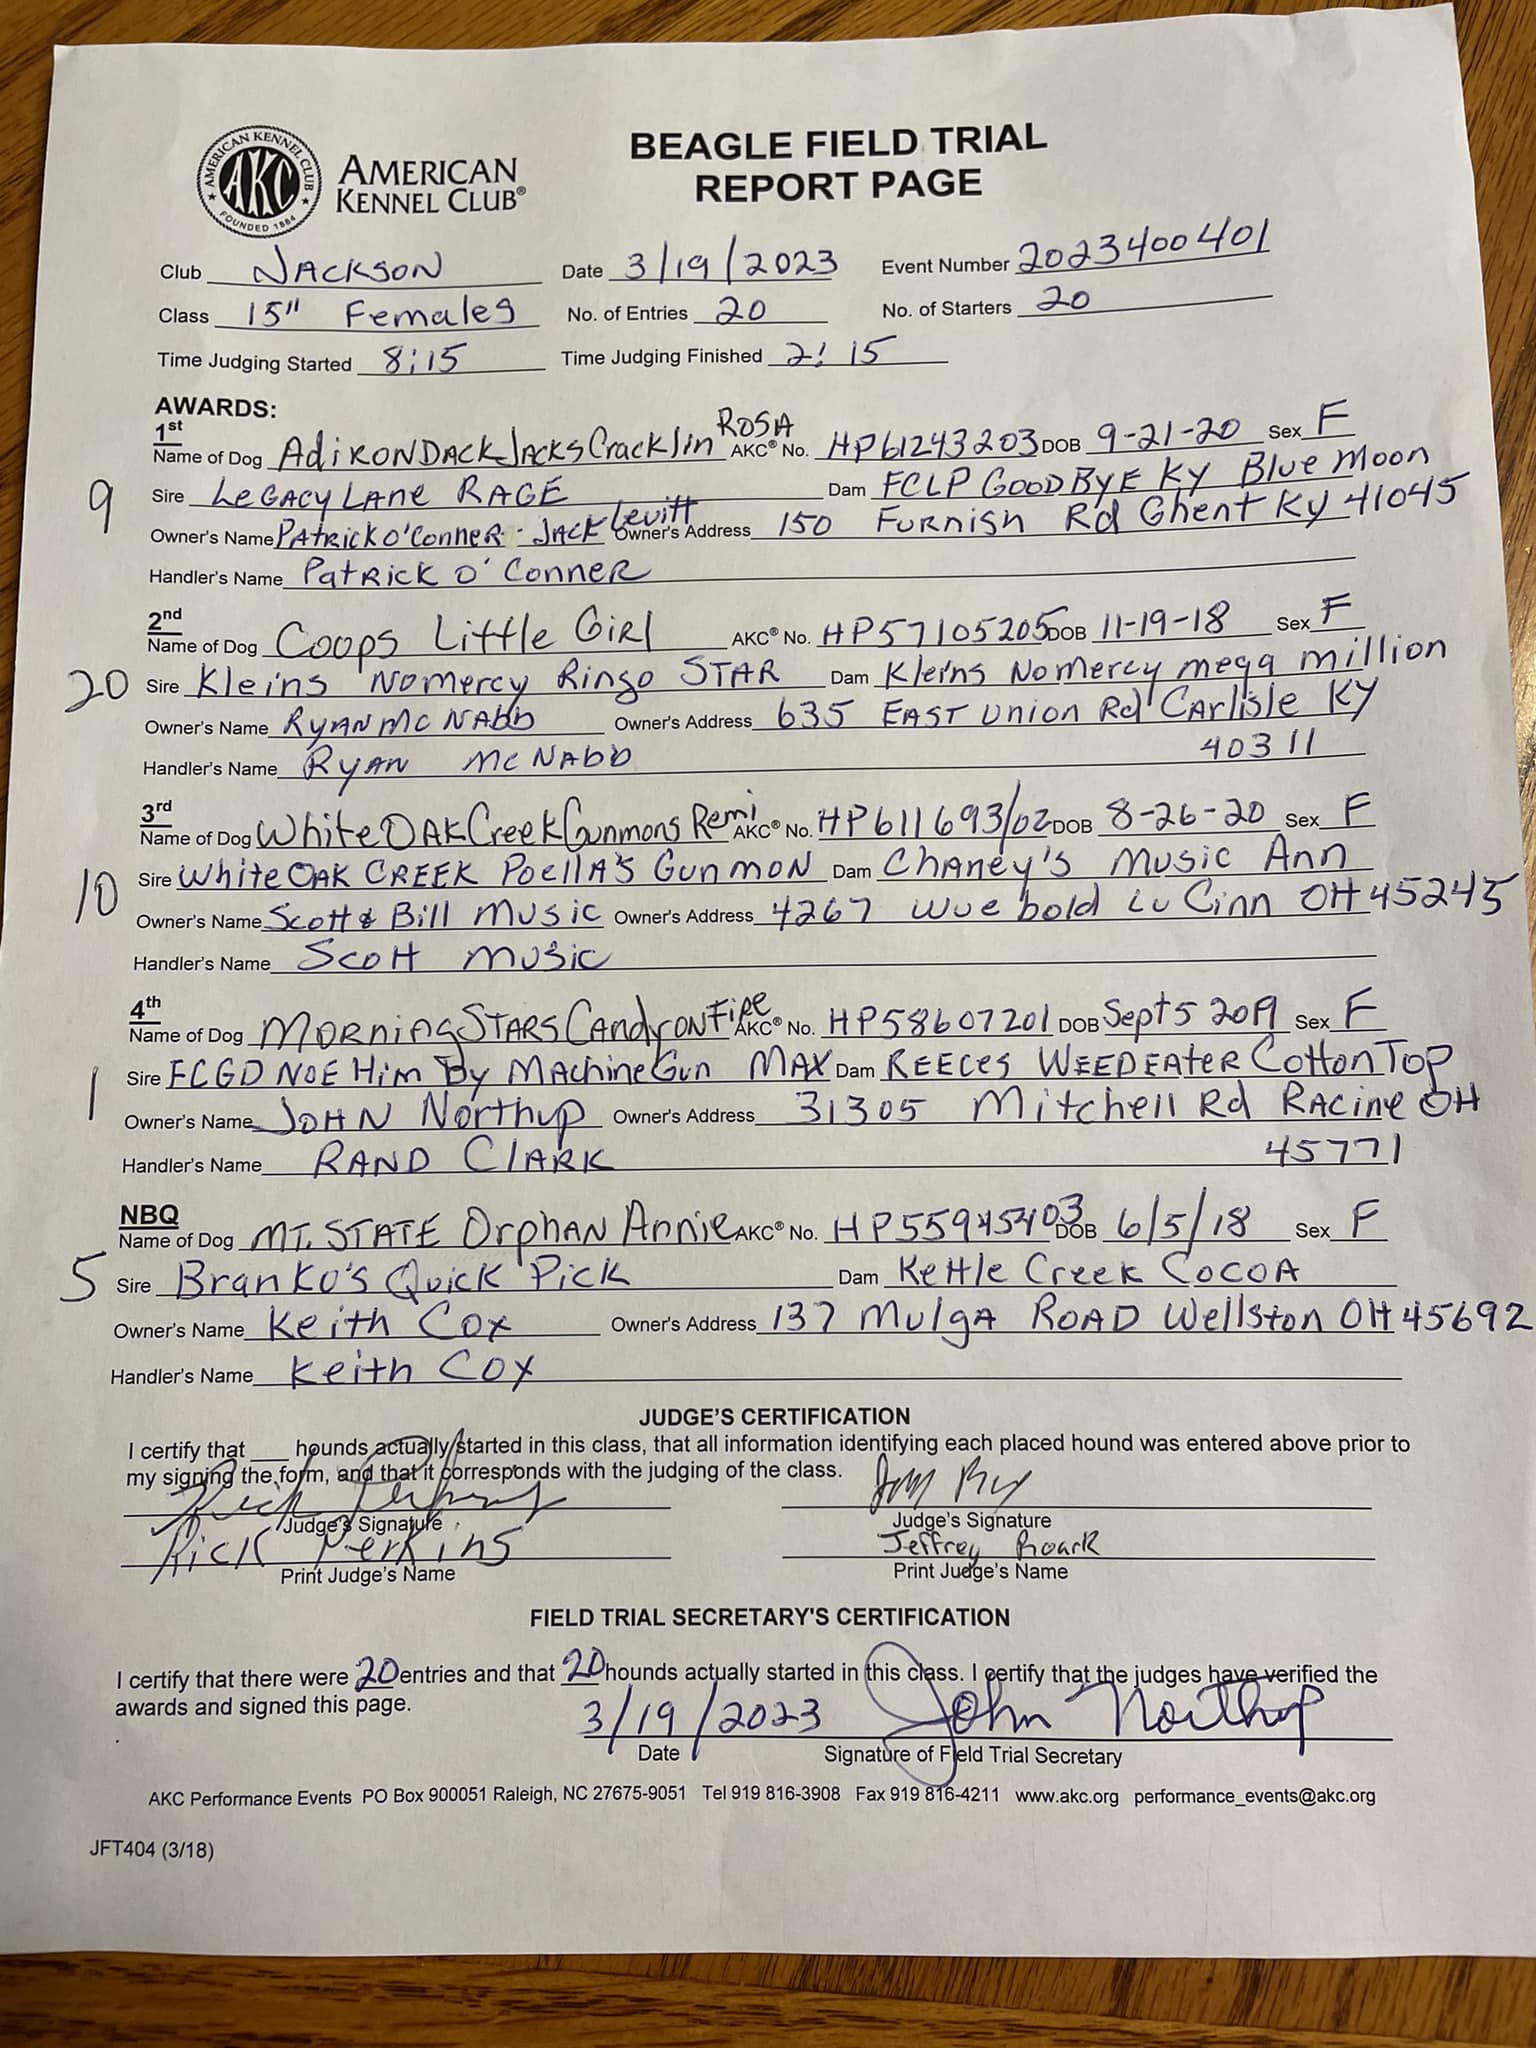 AMERICAN KENNEL CLUB
AKC
FOUNDED 1884
AMERICAN
KENNEL CLUB®
BEAGLE FIELD TRIAL
REPORT PAGE
Club JACKSON Date 3/19/2023 Event Number 2023400401
Class 15" Females No. of Entries 20 No. of Starters 20
Time Judging Started 8:15 Time Judging Finished 2:15
AWARDS:
1st
Name of Dog AdiRONDAckJAcksCracklin ROSA AKC® No. HP61243203 DOB 9-21-20 Sex F
9 Sire LeGACyLANe RAGE Dam FCLP GOODBYE Ky Blue Moon
Owner's Name PAtRick O'Conner - JACK Levitt Owner's Address 150 Furnish Rd Ghent Ky 41045
Handler's Name PatRick O'ConneR
2nd
Name of Dog Coops Little GiRl AKC® No. HP57105205 DOB 11-19-18 Sex F
20 Sire Kleins Nomercy Ringo STAR Dam Kleins Nomercy mega million
Owner's Name RyAN Mc NAbb Owner's Address 635 EAST Union Rd CArlisle Ky
Handler's Name RyAN McNAbb 40311
3rd
Name of Dog White OAK Creek Gunmons Remi AKC® No. HP611693/02 DOB 8-26-20 Sex F
10 Sire White OAK CREEK PoellA's GunmON Dam Chaney's Music Ann
Owner's Name Scott & Bill Music Owner's Address 4267 Cinn OH 45245
Handler's Name Scott Music
4th
Name of Dog MorningSTARSCandyonFiRe AKC® No. HP58607201 DOB Sept 5 2019 Sex F
1 Sire FCGD NOE Him By MAchineGun MAX Dam REECES WEEDEATER CottonTop
Owner's Name JOHN Northup Owner's Address 31305 Mitchell Rd RAcine OH
Handler's Name RAND ClARK 45771
NBQ
Name of Dog MT. STATE OrphAN Annie AKC® No. HP55945403 DOB 6/5/18 Sex F
5 Sire Branko's Quick Pick Dam Kettle Creek COCOA
Owner's Name Keith Cox Owner's Address 137 MulgA ROAD Wellston OH 45692
Handler's Name Keith Cox
JUDGE'S CERTIFICATION
I certify that ___ hounds actually started in this class, that all information identifying each placed hound was entered above prior to
my signing the form, and that it corresponds with the judging of the class.
Rick Perkins
Judge's Signature Judge's Signature
Rick Perkins Jeffrey Roark
Print Judge's Name Print Judge's Name
FIELD TRIAL SECRETARY'S CERTIFICATION
I certify that there were 20 entries and that 20 hounds actually started in this class. I certify that the judges have verified the
awards and signed this page.
3/19/2023 John Northup
Date Signature of Field Trial Secretary
AKC Performance Events PO Box 900051 Raleigh, NC 27675-9051 Tel 919 816-3908 Fax 919 816-4211 www.akc.org performance_events@akc.org
JFT404 (3/18)